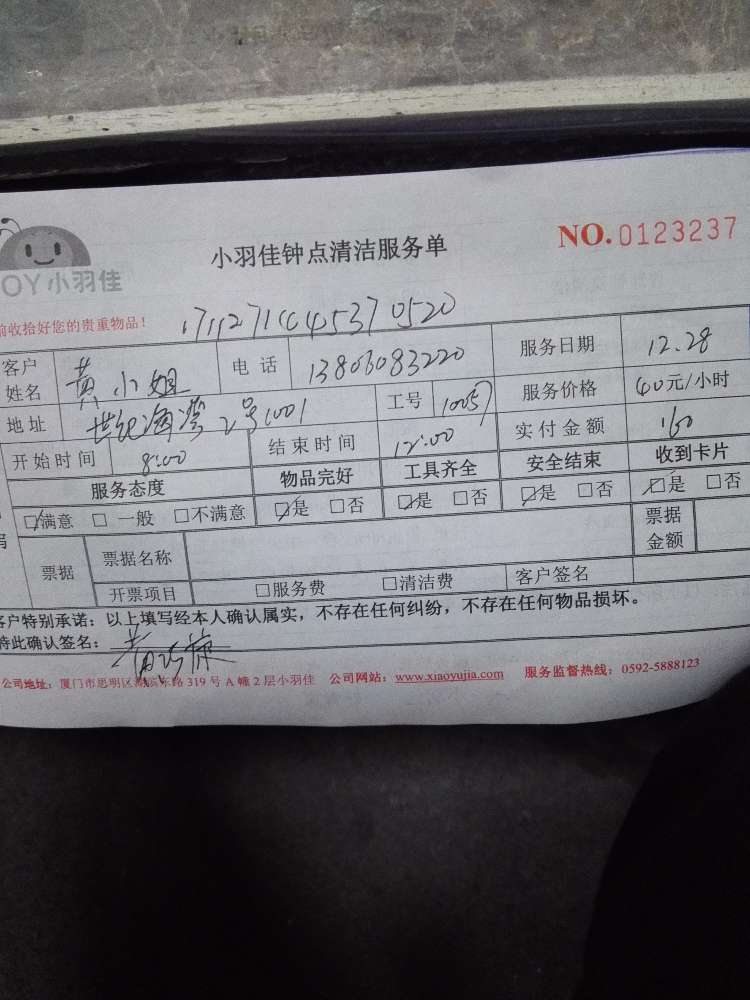 小羽佳钟点清洁服务单
NO. 0123237
OY小羽佳
前收拾好您的贵重物品!
客户姓名 黄小姐 电话 13806083220 服务日期 12.28
地址 世纪海湾2号1001 工号 1005 服务价格 40元/小时
开始时间 8:00 结束时间 12:00 实付金额 160
服务态度 物品完好 工具齐全 安全结束 收到卡片
☑满意 □一般 □不满意 ☑是 □否 ☑是 □否 ☑是 □否 ☑是 □否
票据 票据名称 票据金额
开票项目 □服务费 □清洁费 客户签名
客户特别承诺:以上填写经本人确认属实,不存在任何纠纷,不存在任何物品损坏。
特此确认签名:
公司地址:厦门市思明区湖滨东路319号A幢2层小羽佳 公司网站:www.xiaoyujia.com 服务监督热线:0592-5888123